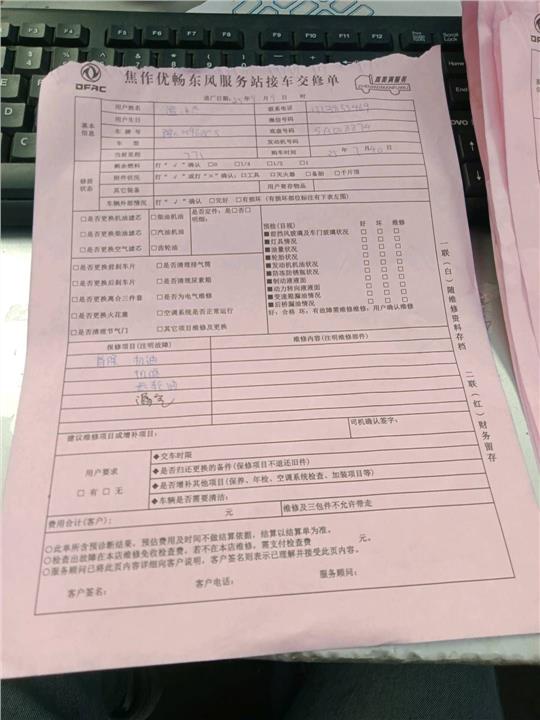 DFAC
焦作优畅东风服务站接车交修单
进厂日期: 年 月 日 时
基本信息
用户姓名 联系电话
用户生日 微信号码
车牌号 底盘号码
车型 发动机号码
当前里程 771 购车时间 年 月 日
修前状态
剩余燃料 打"√"确认 □0 □1/4 □1/2 □1
附件状况 打"√"或打"×"确认:□工具 □灭火器 □备胎 □千斤顶
其它装备 用户寄存物品
车辆外部情况 打"√"确认 □完好 □有损坏(有损坏部位标注有下表左图)
□是否更换机油滤芯 □柴油机油 是否定件:是□否□
□是否更换柴油滤芯 □汽油机油 明细:
□是否更换空气滤芯 □齿轮油
□是否更换前刹车片 □是否清理排气筒
□是否更换后刹车片 □是否清理尿素箱
□是否更换离合三件套 □是否为电气维修
□是否更换火花塞 □空调系统是否正常运行
□是否清理节气门 □其它项目维修及更换
预检(目视) 好 坏 维修
■前挡风玻璃及车门玻璃状况 □ □ □
■灯具情况 □ □ □
■油量状况 □ □ □
■轮胎状况 □ □ □
■发动机机油状况 □ □ □
■防冻防锈瓶状况 □ □ □
■制动液液面 □ □ □
■动力转向液液面 □ □ □
■变速箱漏油情况 □ □ □
■后桥漏油情况 □ □ □
好:合格 坏:有故障需维修维修:用户确认维修
保修项目(注明故障) 维修内容(注明维修部件)
首保 机油
机滤
齿轮油
漏气
建议维修项目或增补项目: 司机确认签字:
用户要求
□有 □无
◆交车时限
◆是否归还更换的备件(保修项目不退还旧件)
◆是否增补其他项目(保养、年检、空调系统检查、加装项目等)
◆车辆是否需要清洁:
费用合计(客户): 元 维修及三包件不允许带走
○此单所含预诊断结果,预估费用及时间不做结算依据,结算以结算单为准。
○检查出故障在本店维修免收检查费,若不在本店维修,需支付检查费 元。
○服务顾问已将此页内容详细向客户说明,客户签名则表示已理解并接受此页内容。
客户签名: 客户电话: 服务顾问:
一联(白)随维修资料存档
二联(红)财务留存